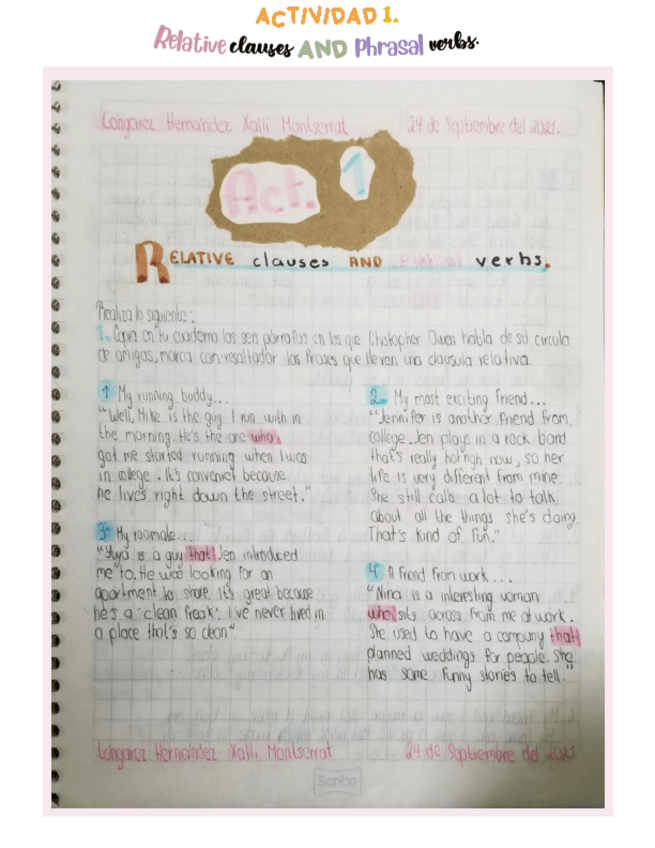 ACTIVIDAD 1.
Relative clauses AND Phrasal verbs.
Longarez Hernández Xalli Montserrat 24 de Septiembre del 2021.
Act. 1
RELATIVE clauses AND PHRASAL verbs.
Realiza lo siguiente:
1. Copia en tu cuaderno los seis párrafos en los que Chistopher Owen habla de su circulo
de amigos, marca con resaltador las frases que lleven una clausula relativa.
1 My running buddy...
"Well, Mike is the guy I run with in
the morning. He's the one who's
got me started running when I was
in college. It's convenict because
he lives right down the street."
2. My most exciting friend...
"Jennifer is another friend from
college. Jen plays in a rock band
that's really hot righ now, so her
life is very different from mine.
She still calls a lot to talk
about all the things she's doing.
That's kind of fun."
3. My roomate...
"Yuya is a guy that Jen introduced
me to. He was looking for an
apartment to share. It's great because
he's a 'clean freak'. I've never lived in
a place that's so clean".
4 A friend from work...
"Nina is a interesting woman
who sits across from me at work.
She used to have a company that
planned weddings for people. She
has some funny stories to tell."
Longarez Hernández Xalli Montserrat 24 de Septiembre del 2021
Scribe